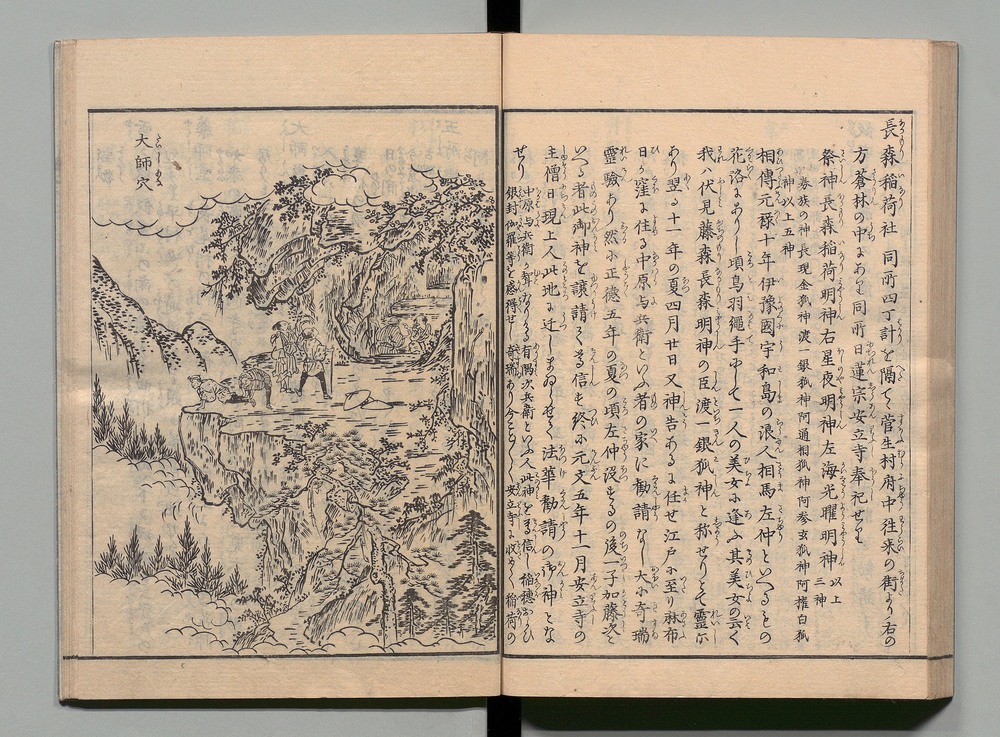 長森稲荷社 同所四丁計を隔て菅生村府中往来の街より右の
方蒼林の中にあり同所日蓮宗安立寺奉祀せり
祭神長森稲荷明神右星夜明神左海光曜明神以上三神
眷族の神長現金狐神渡一銀狐神阿通相狐神阿参玄狐神阿権白狐
神以上五神
相傳元禄十年伊豫國宇和島の浪人相馬左仲といへるもの
花洛にありし頃鳥羽縄手にて一人の美女に逢ふ其美女の云く
我ハ伏見藤森長森明神の臣渡一銀狐神と称せりとて霊
あり翌る十一年の夏四月廿日又神告あるに任せ江戸に至り麻布
日か窪に住る中原与兵衛といふ者の家に勧請なし大に奇瑞
霊験あり然に正徳五年の夏の頃左仲没するの後一子加藤次と
いへる者此御神を譲請くる信も終に元文五年十一月安立寺の
主僧日現上人此地に迁しまゐらせて法華勧請の御神とな
せり 中原与兵衛か聟なりける有隅次兵衛といふ人此神を信し稲穂かひ
銀封伽羅等を感得せし奇瑞あり今ことことく安立寺に収む 稲荷の
大師穴